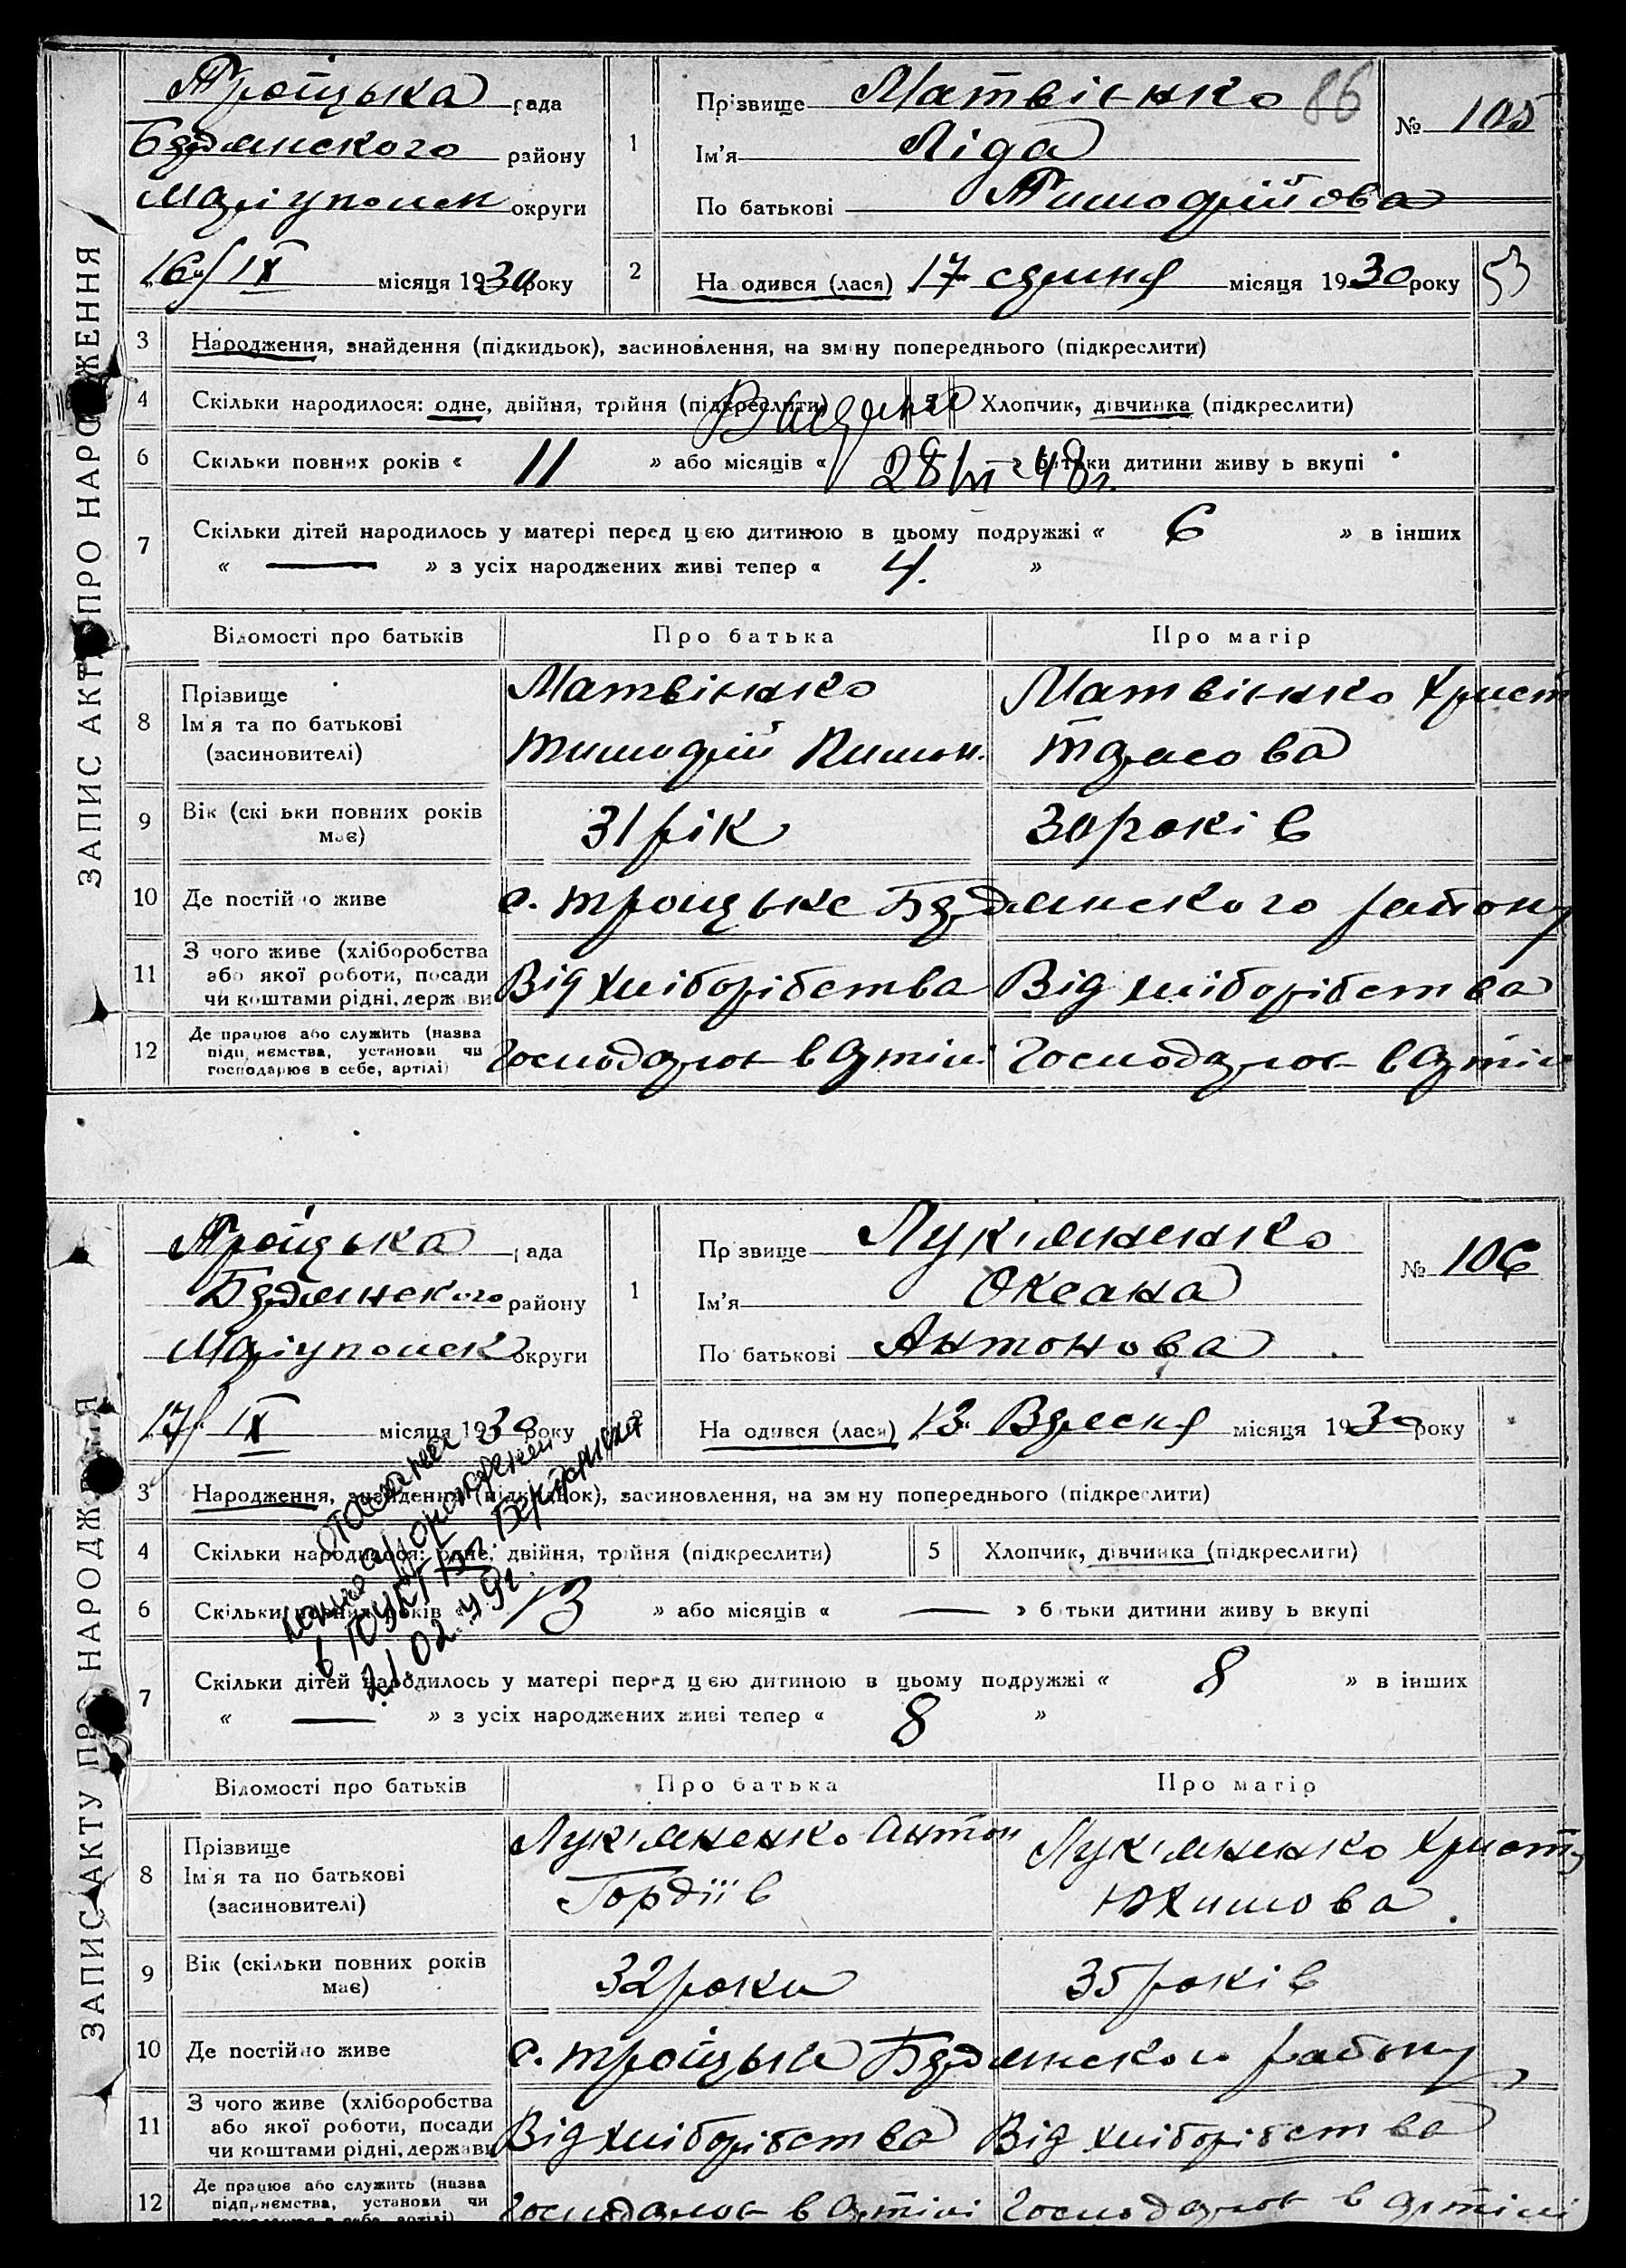 ЗАПИС АКТУ ПРО НАРОДЖЕННЯ
Троїцька рада
Бердянського району
Маріупольськ округи
16/IX місяця 1930 року
1
Прізвище Матвієнко
86
№ 105
Ім'я Ліда
По батькові Тимофійова
2
Народився (лася) 17 серпня місяця 1930 року
53
3 Народження, знайдення (підкидьок), засиновлення, на зміну попереднього (підкреслити)
4 Скільки народилося: одне, двійня, трійня (підкреслити) 5 Хлопчик, дівчинка (підкреслити)
6 Скільки повних років « 11 » або місяців « батьки дитини живуть вкупі
28/VI-48г.
7 Скільки дітей народилось у матері перед цією дитиною в цьому подружжі « 6 » в інших
« — » з усіх народжених живі тепер « 4. »
Відомості про батьків Про батька Про матір
8 Прізвище Ім'я та по батькові (засиновителі)
Матвієнко
Тимофій Пимон.
Матвієнко Христ
Тарасова
9 Вік (скільки повних років має) 31 рік 30 років
10 Де постійно живе с. Троицьке Бердянського району
11 З чого живе (хліборобства або якої роботи, посади чи коштами рідні, держави Від хліборібства Від хліборібства
12 Де працює або служить (назва підприємства, установи чи господарює в себе, артілі) Господарює в Артілі Господарює в Артілі
ЗАПИС АКТУ ПРО НАРОДЖЕННЯ
Троїцька рада
Бердянського району
Маріупольськ округи
17/IX місяця 1930 року
1
Прізвище Лук'яненко
№ 106
Ім'я Оксана
По батькові Антонова
2
Народився (лася) 13 Вересня місяця 1930 року
3 Народження, знайдення (підкидьок), засиновлення, на зміну попереднього (підкреслити)
4 Скільки народилося: одне, двійня, трійня (підкреслити) 5 Хлопчик, дівчинка (підкреслити)
6 Скільки повних років « 13 » або місяців « — » батьки дитини живуть вкупі
21.02.
7 Скільки дітей народилось у матері перед цією дитиною в цьому подружжі « 8 » в інших
« — » з усіх народжених живі тепер « 8 »
Відомості про батьків Про батька Про матір
8 Прізвище Ім'я та по батькові (засиновителі)
Лук'яненко Антон
Гордіїв
Лук'яненко Христя
Юхимова
9 Вік (скільки повних років має) 32 роки 35 років
10 Де постійно живе с. Троїцьке Бердянського району
11 З чого живе (хліборобства або якої роботи, посади чи коштами рідні, держави Від хліборібства Від хліборібства
12 Де працює або служить (назва підприємства, установи чи Господарює в Артілі Господарює в Артілі